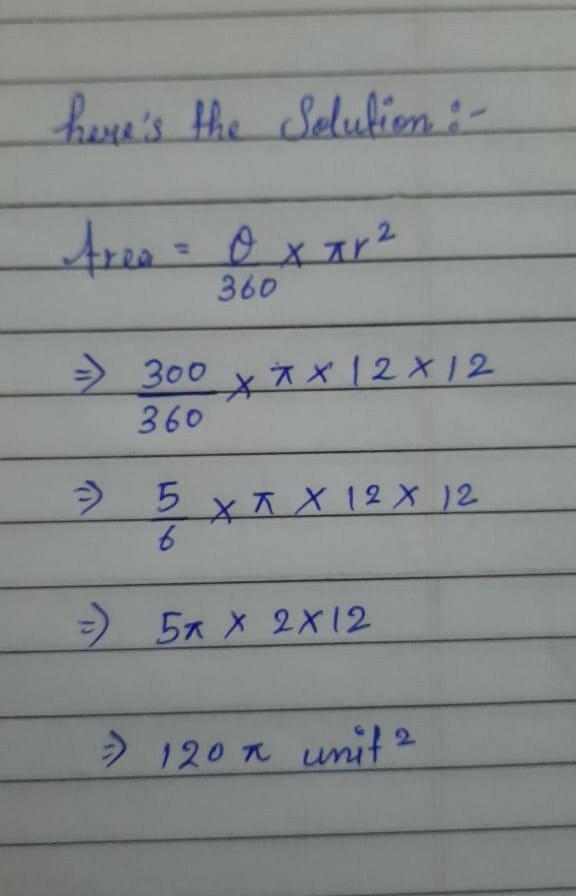 here's the Solution :-
Area = θ/360 × πr²
⇒ 300/360 × π × 12 × 12
⇒ 5/6 × π × 12 × 12
⇒ 5π × 2 × 12
⇒ 120 π unit²